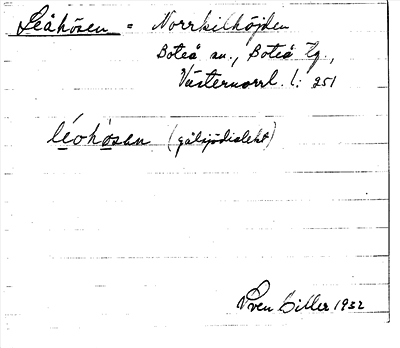 Leåhösen = Norrkilhöjden
Boteå sn., Boteå tg.,
Västernorrl. l: 251
léohösen (gålsjödialekt)
Sven Eiller 1932